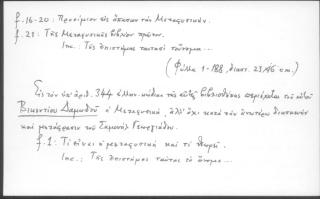 f. 16-20: Προοίμιον εἰς ἅπασαν τὴν Μεταφυσικήν.
f. 21: Τῆς Μεταφυσικῆς βιβλίον πρῶτον.
Inc.: Τῆς ἐπιστήμης ταύτησὶ τοὔνομα...
(Φύλλα 1-188, διαστ. 23,4/6 c.m.)
Εἰς τὸν ὑπ' ἀριθ. 344 ἑλλην. κώδικα τῆς αὐτῆς βιβλιοθήκης περιέχεται τοῦ αὐτοῦ
Βικεντίου Δαμωδοῦ ἡ Μεταφυσικά, ἀλλ' ὄχι κατὰ τὴν ἀνωτέρω διασκευὴν
καὶ μετάφρασιν τοῦ Σαμουὴλ Γεωργιάδου.
f. 1: Τί εἶναι ἡ μεταφυσικὴ καὶ τί θεωρεῖ.
Inc.: Τῆς ἐπιστήμης ταύτης τὸ ὄνομα...